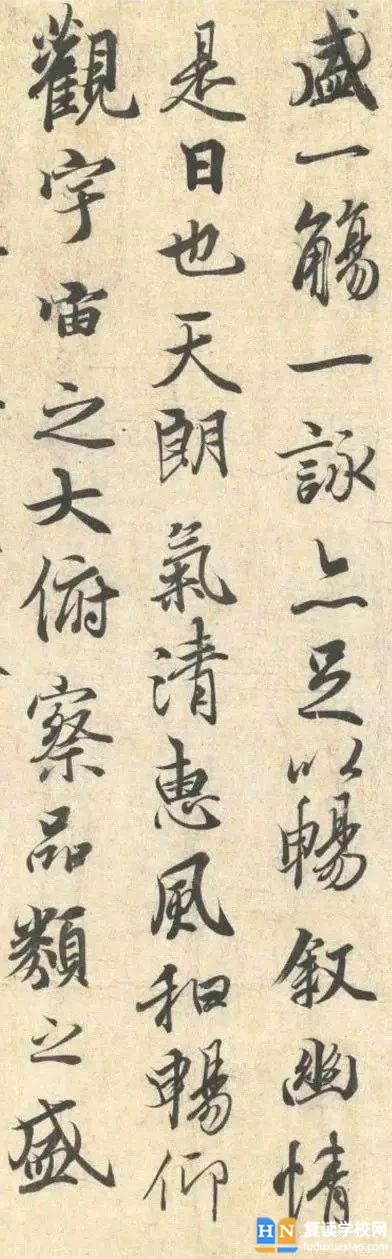 盛一觴一詠亦足以暢叙幽情
是日也天朗氣清惠風和暢仰
觀宇宙之大俯察品類之盛
HN 复读学校网
fuduxuexiao.com